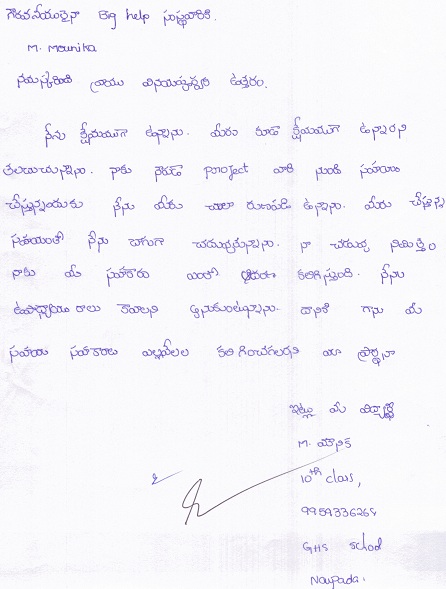 గౌరవనీయులైనా Big help సంస్థవారికి.
M. Mounika
నమస్కరించి వ్రాయు వినయపూర్వక ఉత్తరం.
నేను క్షేమముగా ఉన్నాను. మీరు కూడా క్షేమముగా ఉన్నారని
తలచుచున్నాను. నాకు project వారి నుండి సహాయం
చేస్తున్నందుకు నేను మీకు చాలా రుణపడి ఉన్నాను. మీరు చేస్తున్న
సహాయంతో నేను బాగుగా చదువుచున్నాను. నా చదువు నిమిత్తం
నాకు మీ సహకారం ఎంతో కలిగిస్తుంది. నేను
ఉపాధ్యాయు రాలు కావాలని అనుకుంటున్నాను. దానికి గాను మీ
సహాయ సహకారాలు ఎల్లవేలల కలిగించగలరని నా ప్రార్థన
ఇట్లు మీ విద్యార్థి
M. మౌనిక
10th class,
9959336264
GHS School
Naupada.